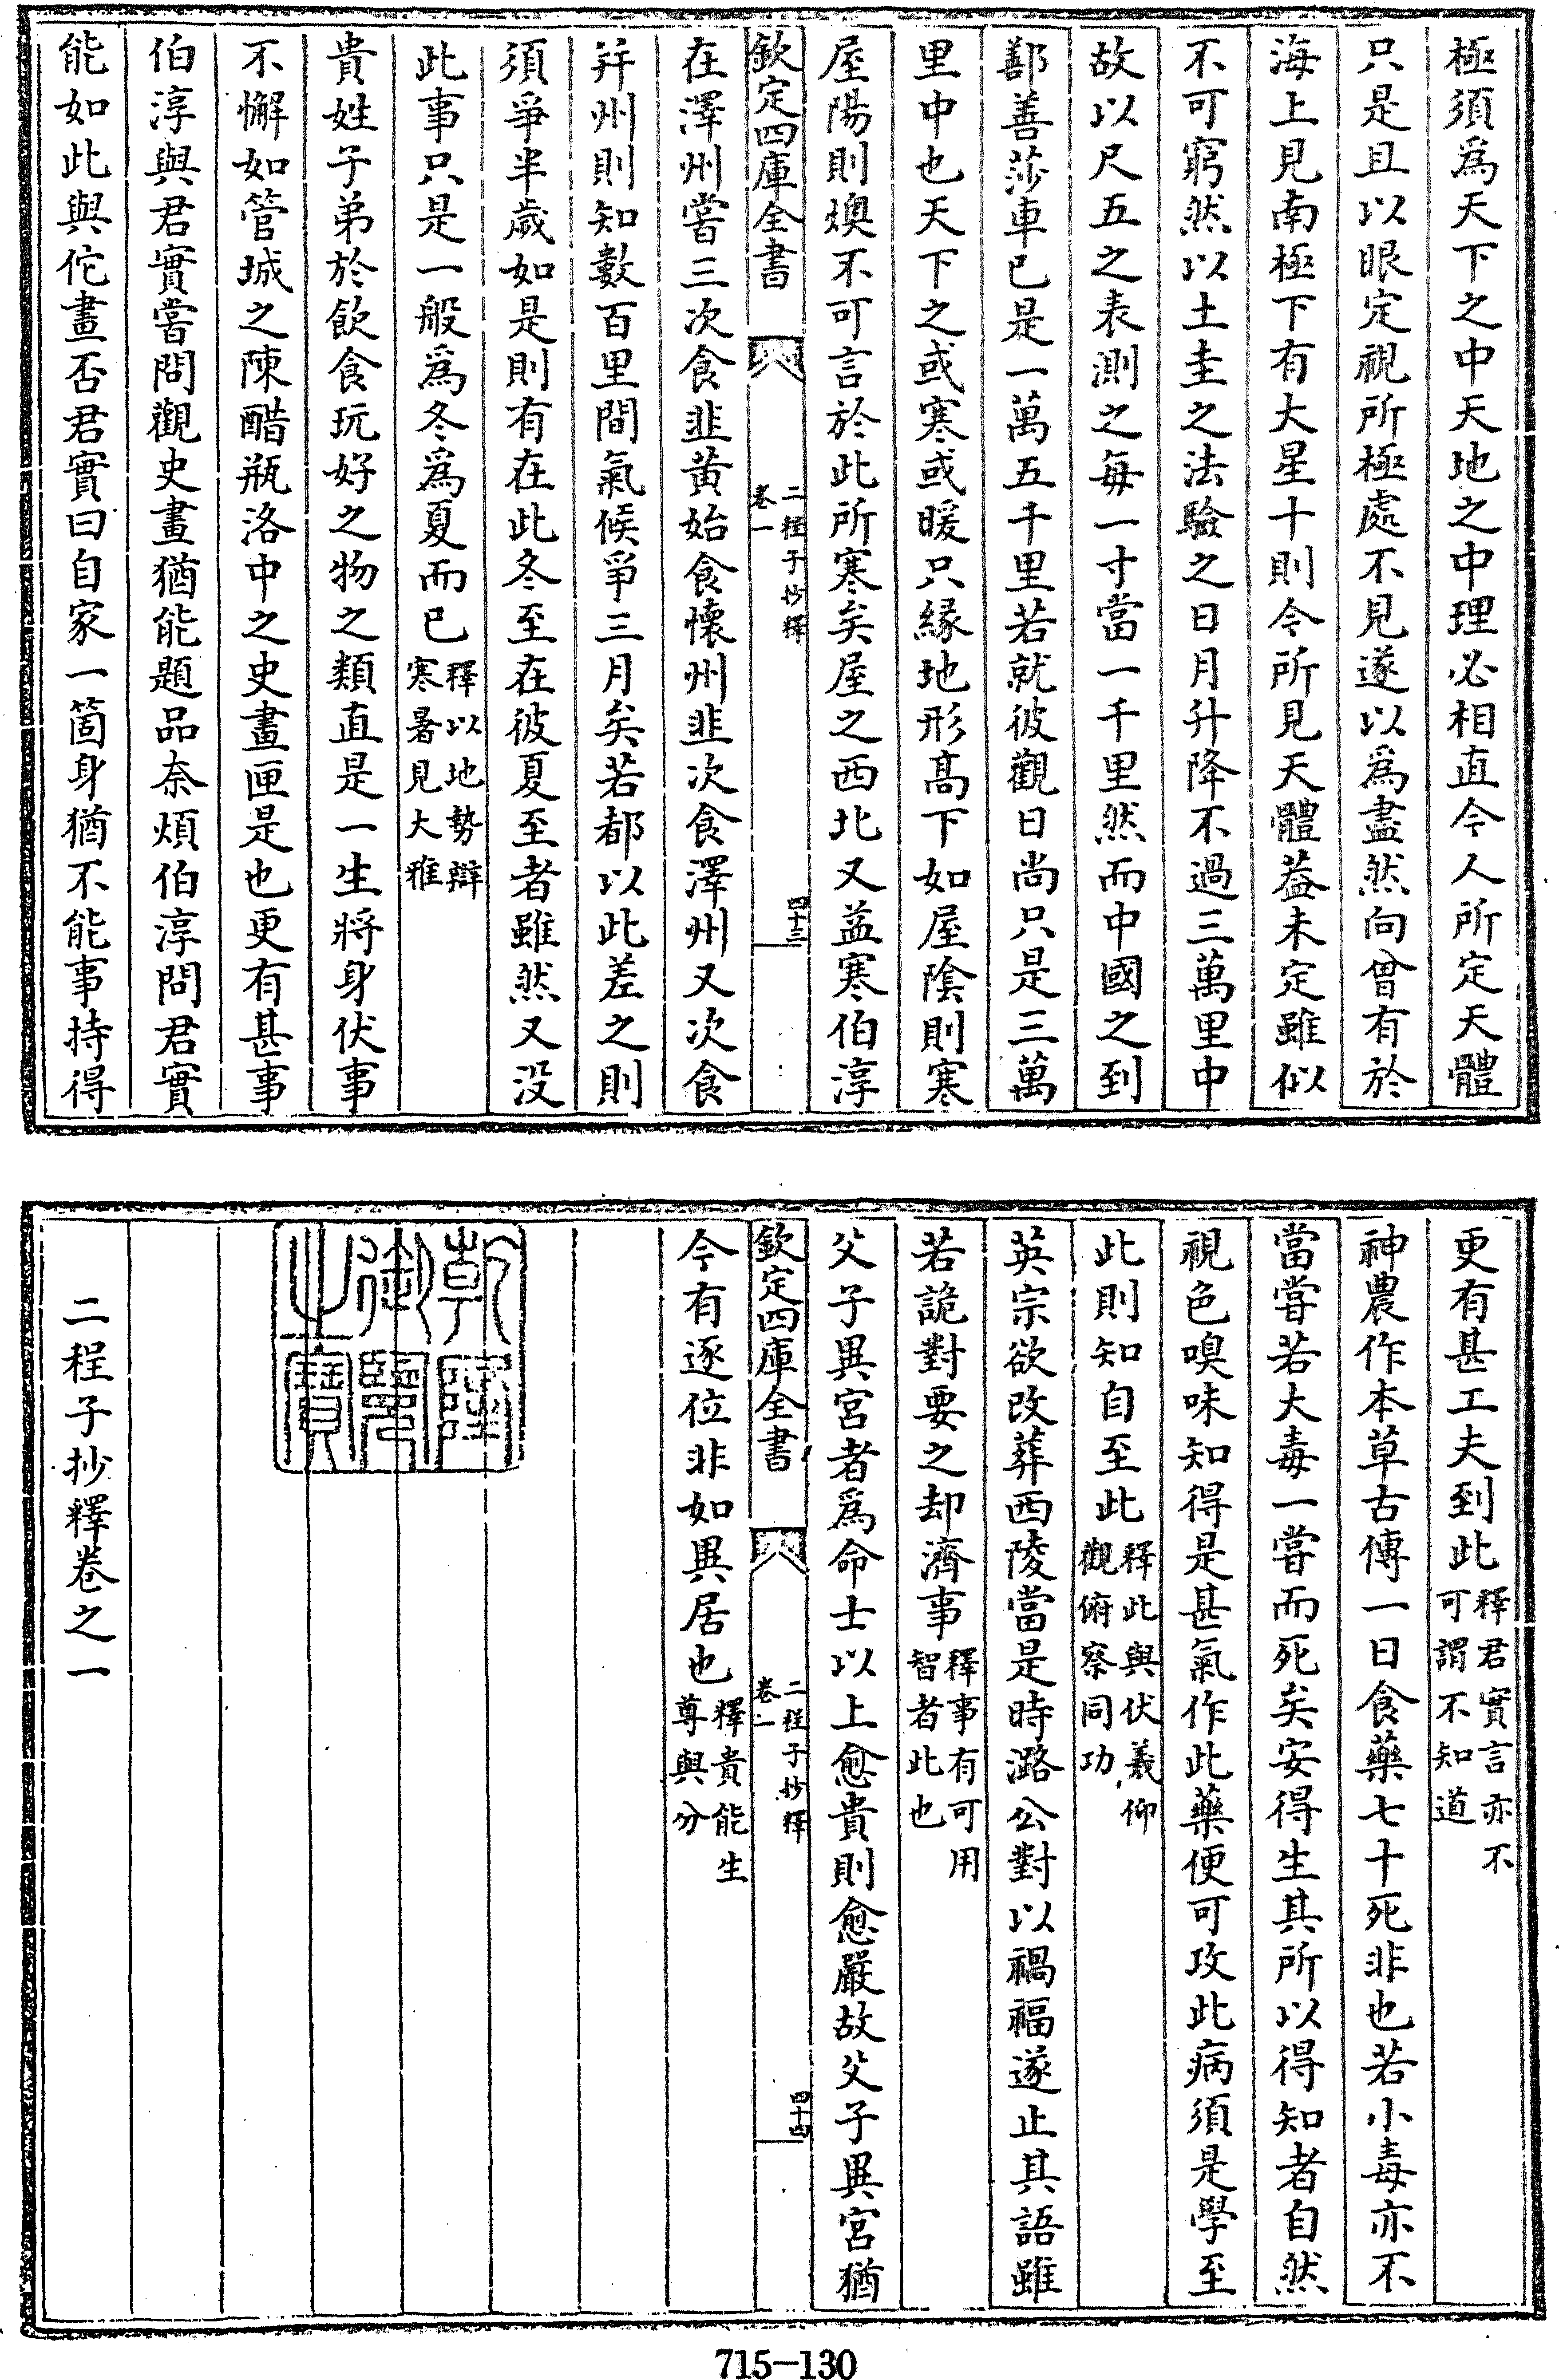 極須爲天下之中天地之中理必相直今人所定天體
只是且以眼定視所極處不見遂以爲盡然向曾有於
海上見南極下有大星十則今所見天體葢未定雖似
不可窮然以土圭之法驗之日月升降不過三萬里中
故以尺五之表測之每一寸當一千里然而中國之到
鄯善莎車已是一萬五千里若就彼觀日尚只是三萬
里中也天下之或寒或暖只緣地形髙下如屋陰則寒
屋陽則燠不可言於此所寒矣屋之西北又益寒伯淳
欽定四庫全書
二程子抄釋
卷一
四十三
在澤州嘗三次食韭黄始食懷州韭次食澤州又次食
并州則知數百里間氣候爭三月矣若都以此差之則
須爭半歲如是則有在此冬至在彼夏至者雖然又没
此事只是一般爲冬爲夏而已釋以地勢辯
寒暑見大雅
貴姓子弟於飲食玩好之物之類直是一生將身伏事
不懈如管城之陳醋瓶洛中之史畫匣是也更有甚事
伯淳與君實嘗問觀史畫猶能題品奈煩伯淳問君實
能如此與佗畫否君實曰自家一箇身猶不能事持得
更有甚工夫到此釋君實言亦不
可謂不知道
神農作本草古傳一日食藥七十死非也若小毒亦不
當嘗若大毒一嘗而死矣安得生其所以得知者自然
視色嗅味知得是甚氣作此藥便可攻此病須是學至
此則知自至此釋此與伏羲仰
觀俯察同功
英宗欲改葬西陵當是時潞公對以禍福遂止其語雖
若詭對要之却濟事釋事有可用
智者此也
父子異宮者爲命士以上愈貴則愈嚴故父子異宮猶
欽定四庫全書
二程子抄釋
卷一
四十四
今有逐位非如異居也釋貴能生
尊與分
乾隆
御覽
之寶
二程子抄釋卷之一
715-130